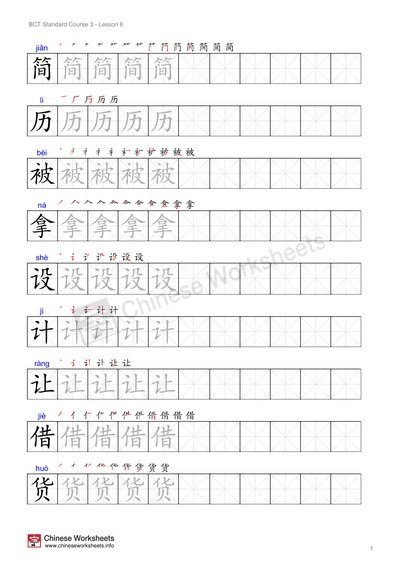 BCT Standard Course 3 - Lesson 6
jiǎn
简 简 简 简 简
lì
历 历 历 历 历
bèi
被 被 被 被 被
ná
拿 拿 拿 拿 拿
shè
设 设 设 设 设
jì
计 计 计 计 计
ràng
让 让 让 让 让
jiè
借 借 借 借 借
huò
货 货 货 货 货
Chinese Worksheets
Chinese Worksheets
www.chineseworksheets.info
1